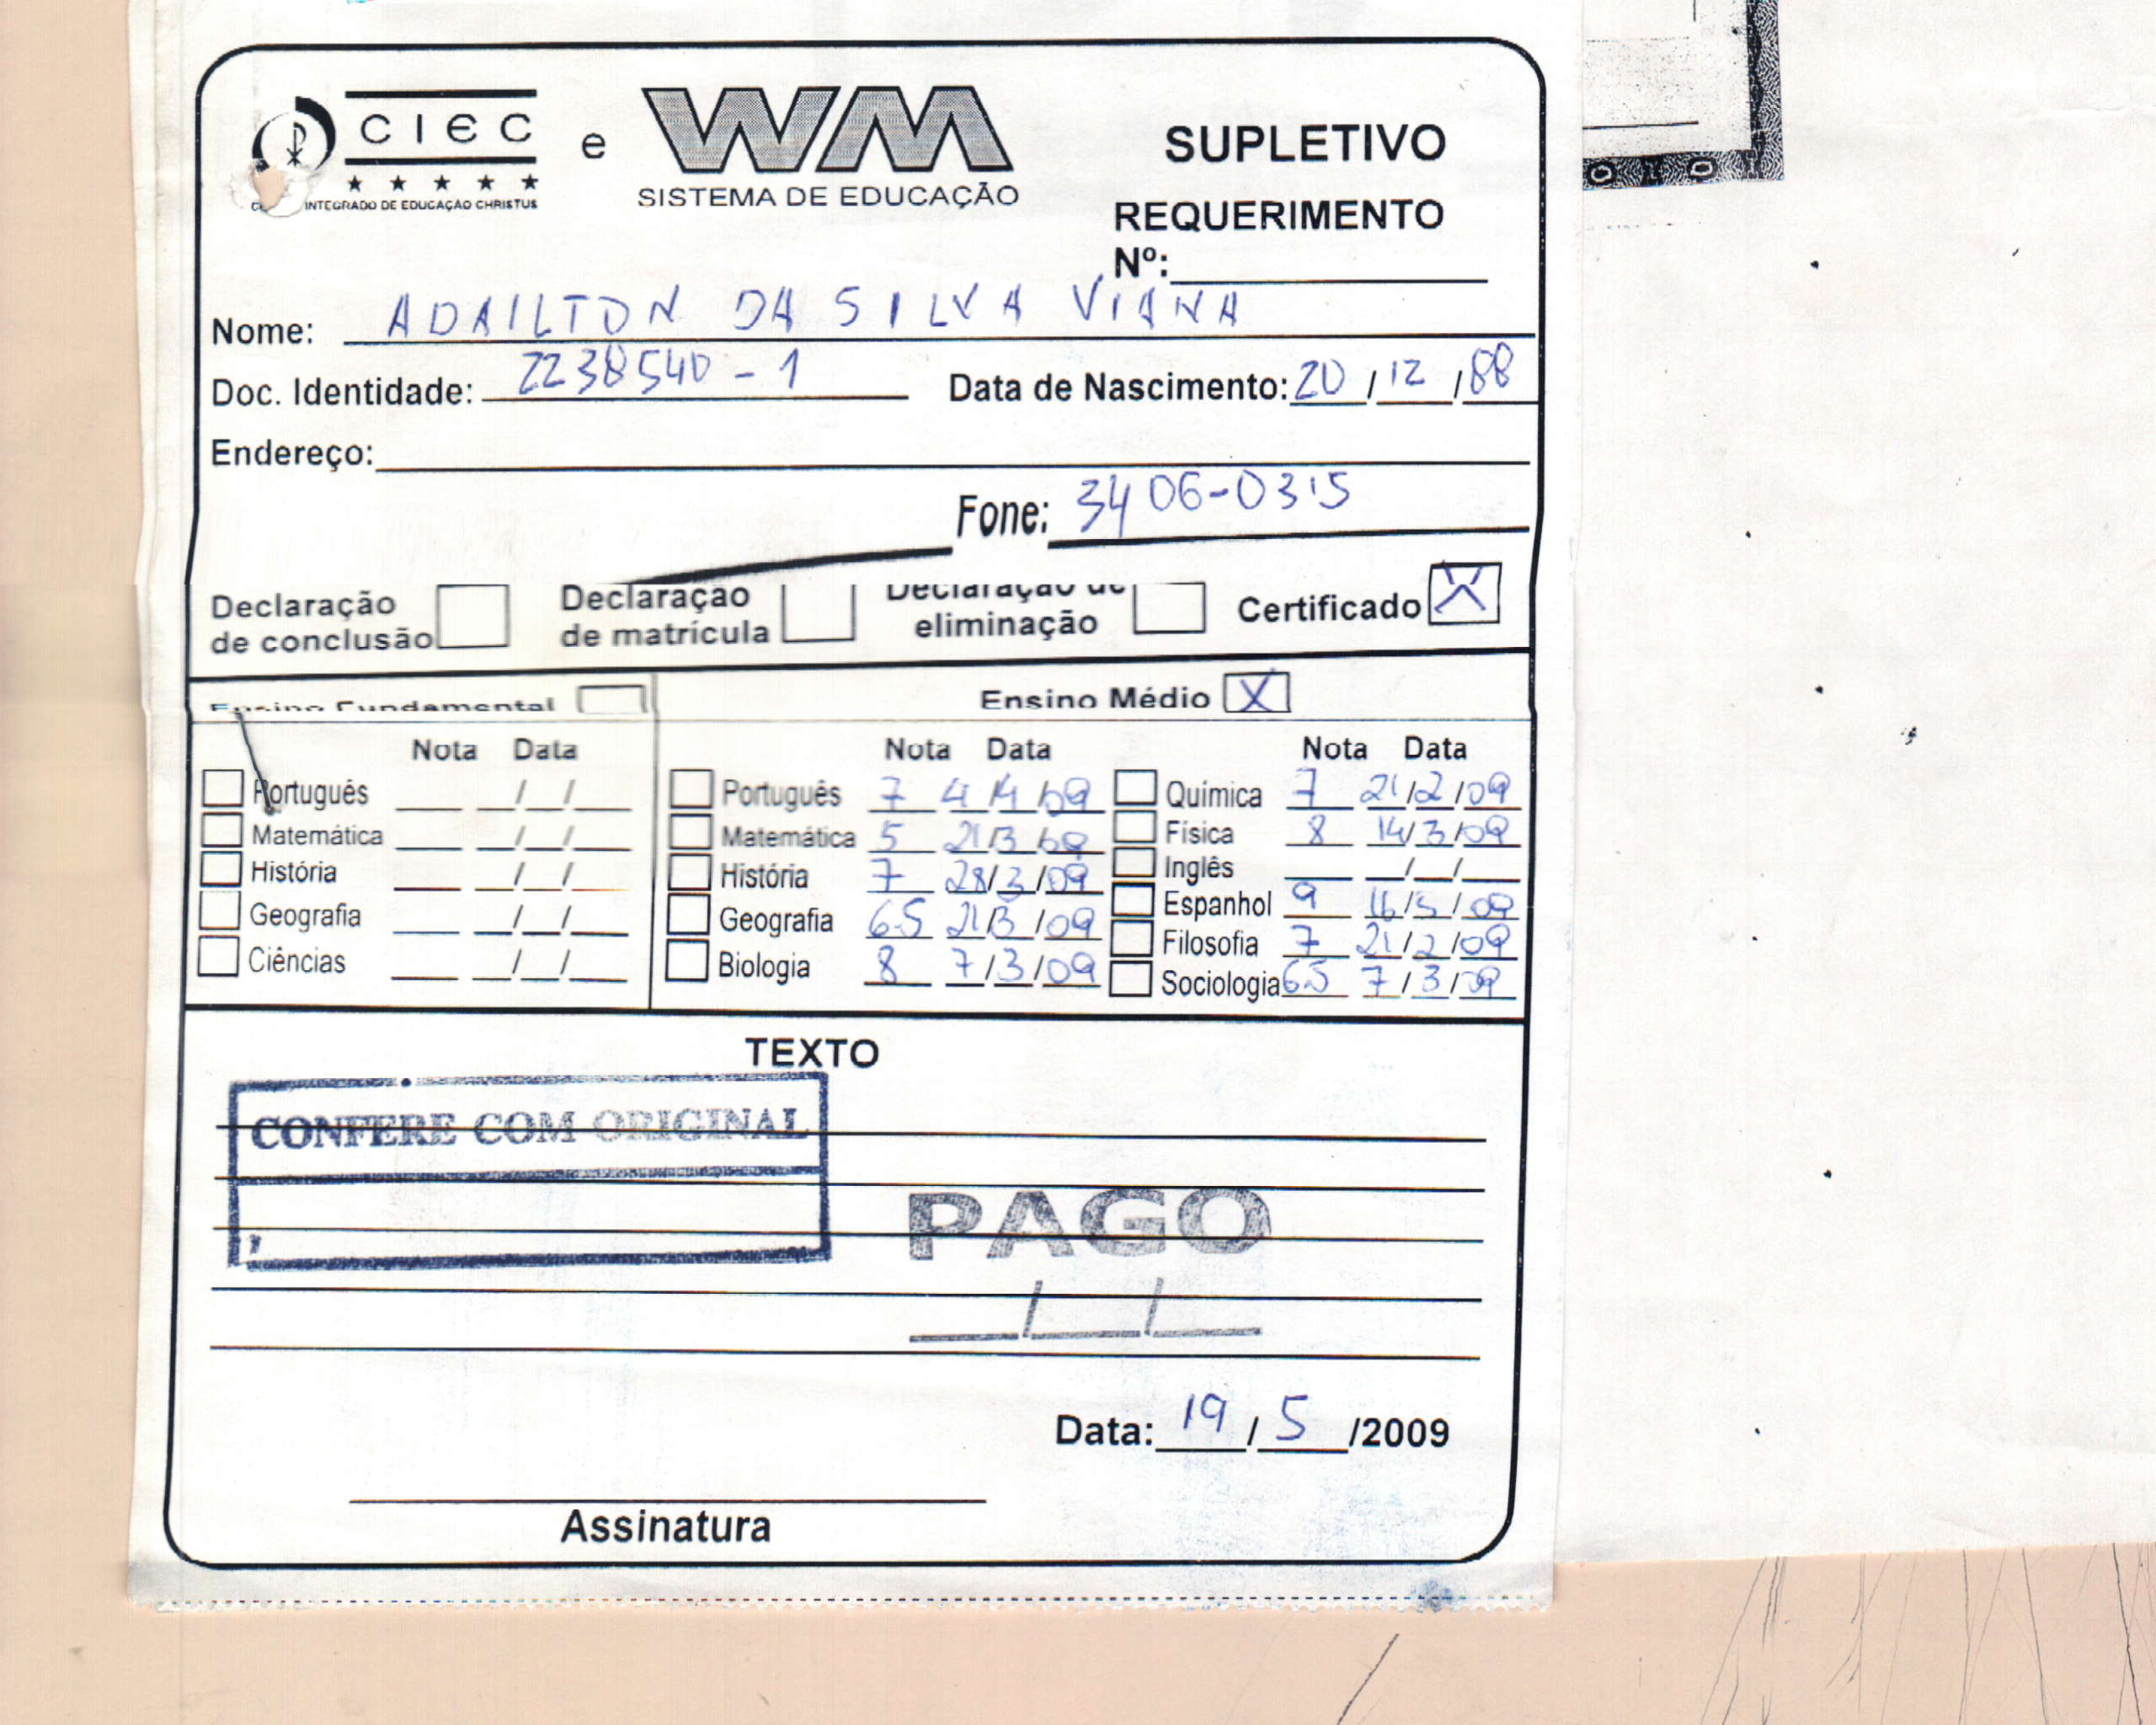 CIEC e WM SUPLETIVO
INTEGRADO DE EDUCAÇÃO CHRISTUS SISTEMA DE EDUCAÇÃO
REQUERIMENTO
Nº:
Nome: ADAILTON DA SILVA VIANA
Doc. Identidade: 2238540-1 Data de Nascimento: 20/12/88
Endereço:
Fone: 3406-0315
Declaração de conclusão
Declaração de matrícula
Declaração de eliminação
Certificado X
Ensino Fundamental
Nota Data
Português __ / /
Matemática __ / /
História __ / /
Geografia __ / /
Ciências __ / /
Ensino Médio X
Nota Data
Português 7 4/4/09
Matemática 5 21/3/09
História 7 28/3/09
Geografia 6.5 21/3/09
Biologia 8 7/3/09
Nota Data
Química 7 21/2/09
Física 8 14/3/09
Inglês __ / /
Espanhol 9 16/5/09
Filosofia 7 21/2/09
Sociologia 6.5 7/3/09
TEXTO
CONFERE COM ORIGINAL
PAGO
__/__/__
Data: 19/5/2009
Assinatura